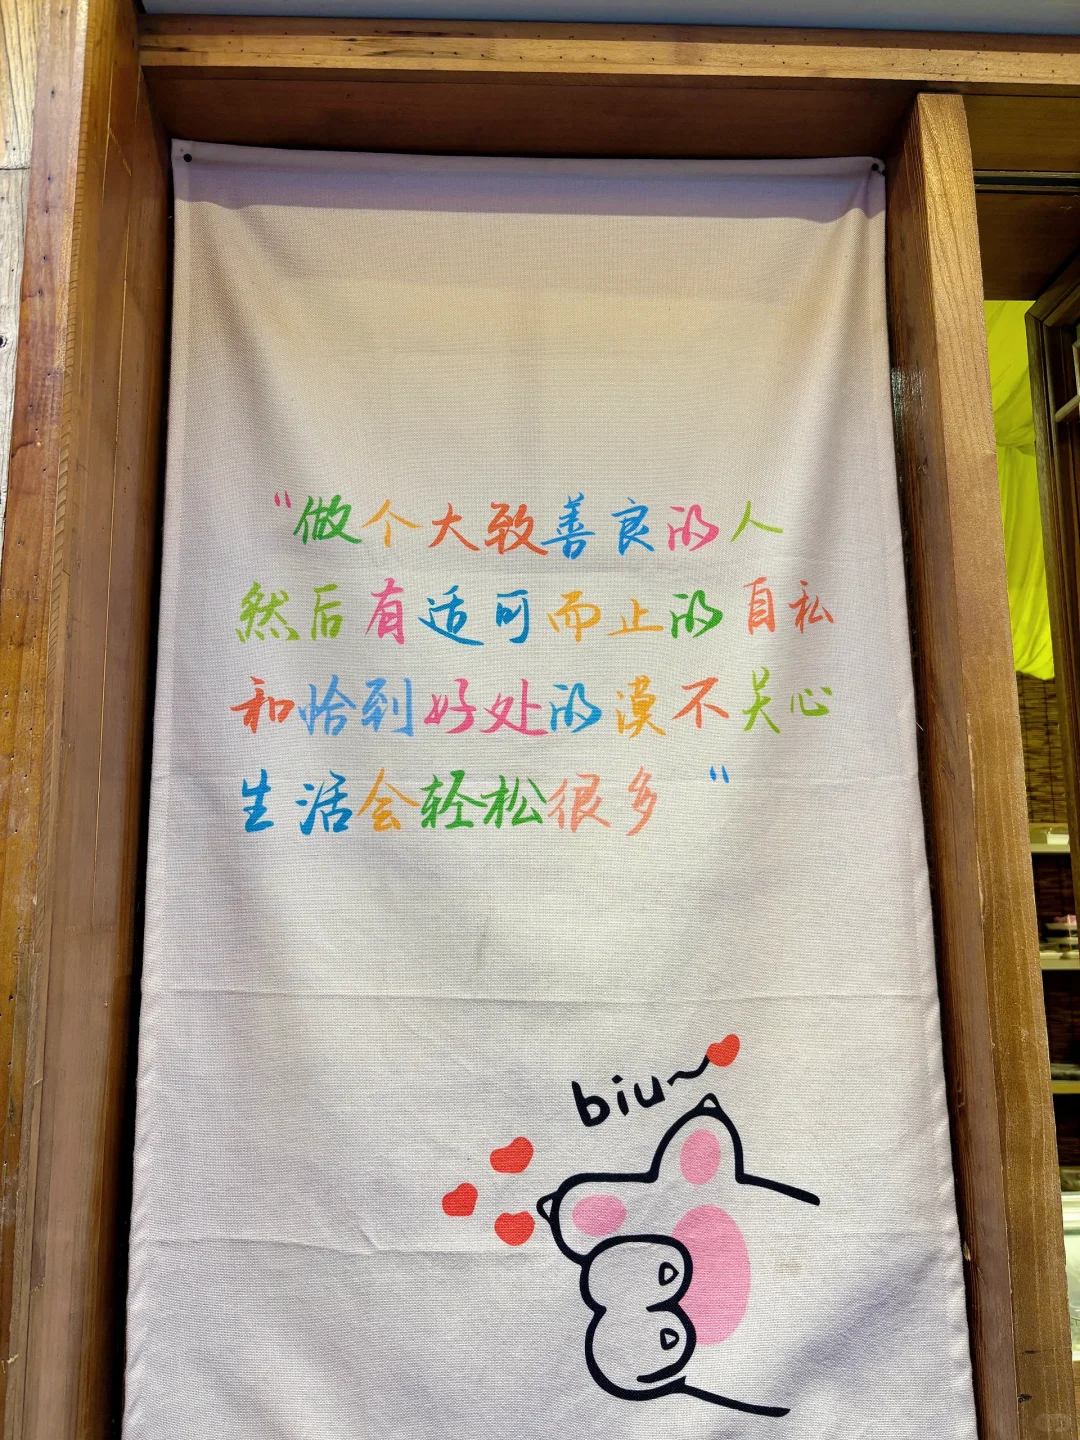 “做个大致善良的人
然后有适可而止的自私
和恰到好处的漠不关心
生活会轻松很多“
biu~